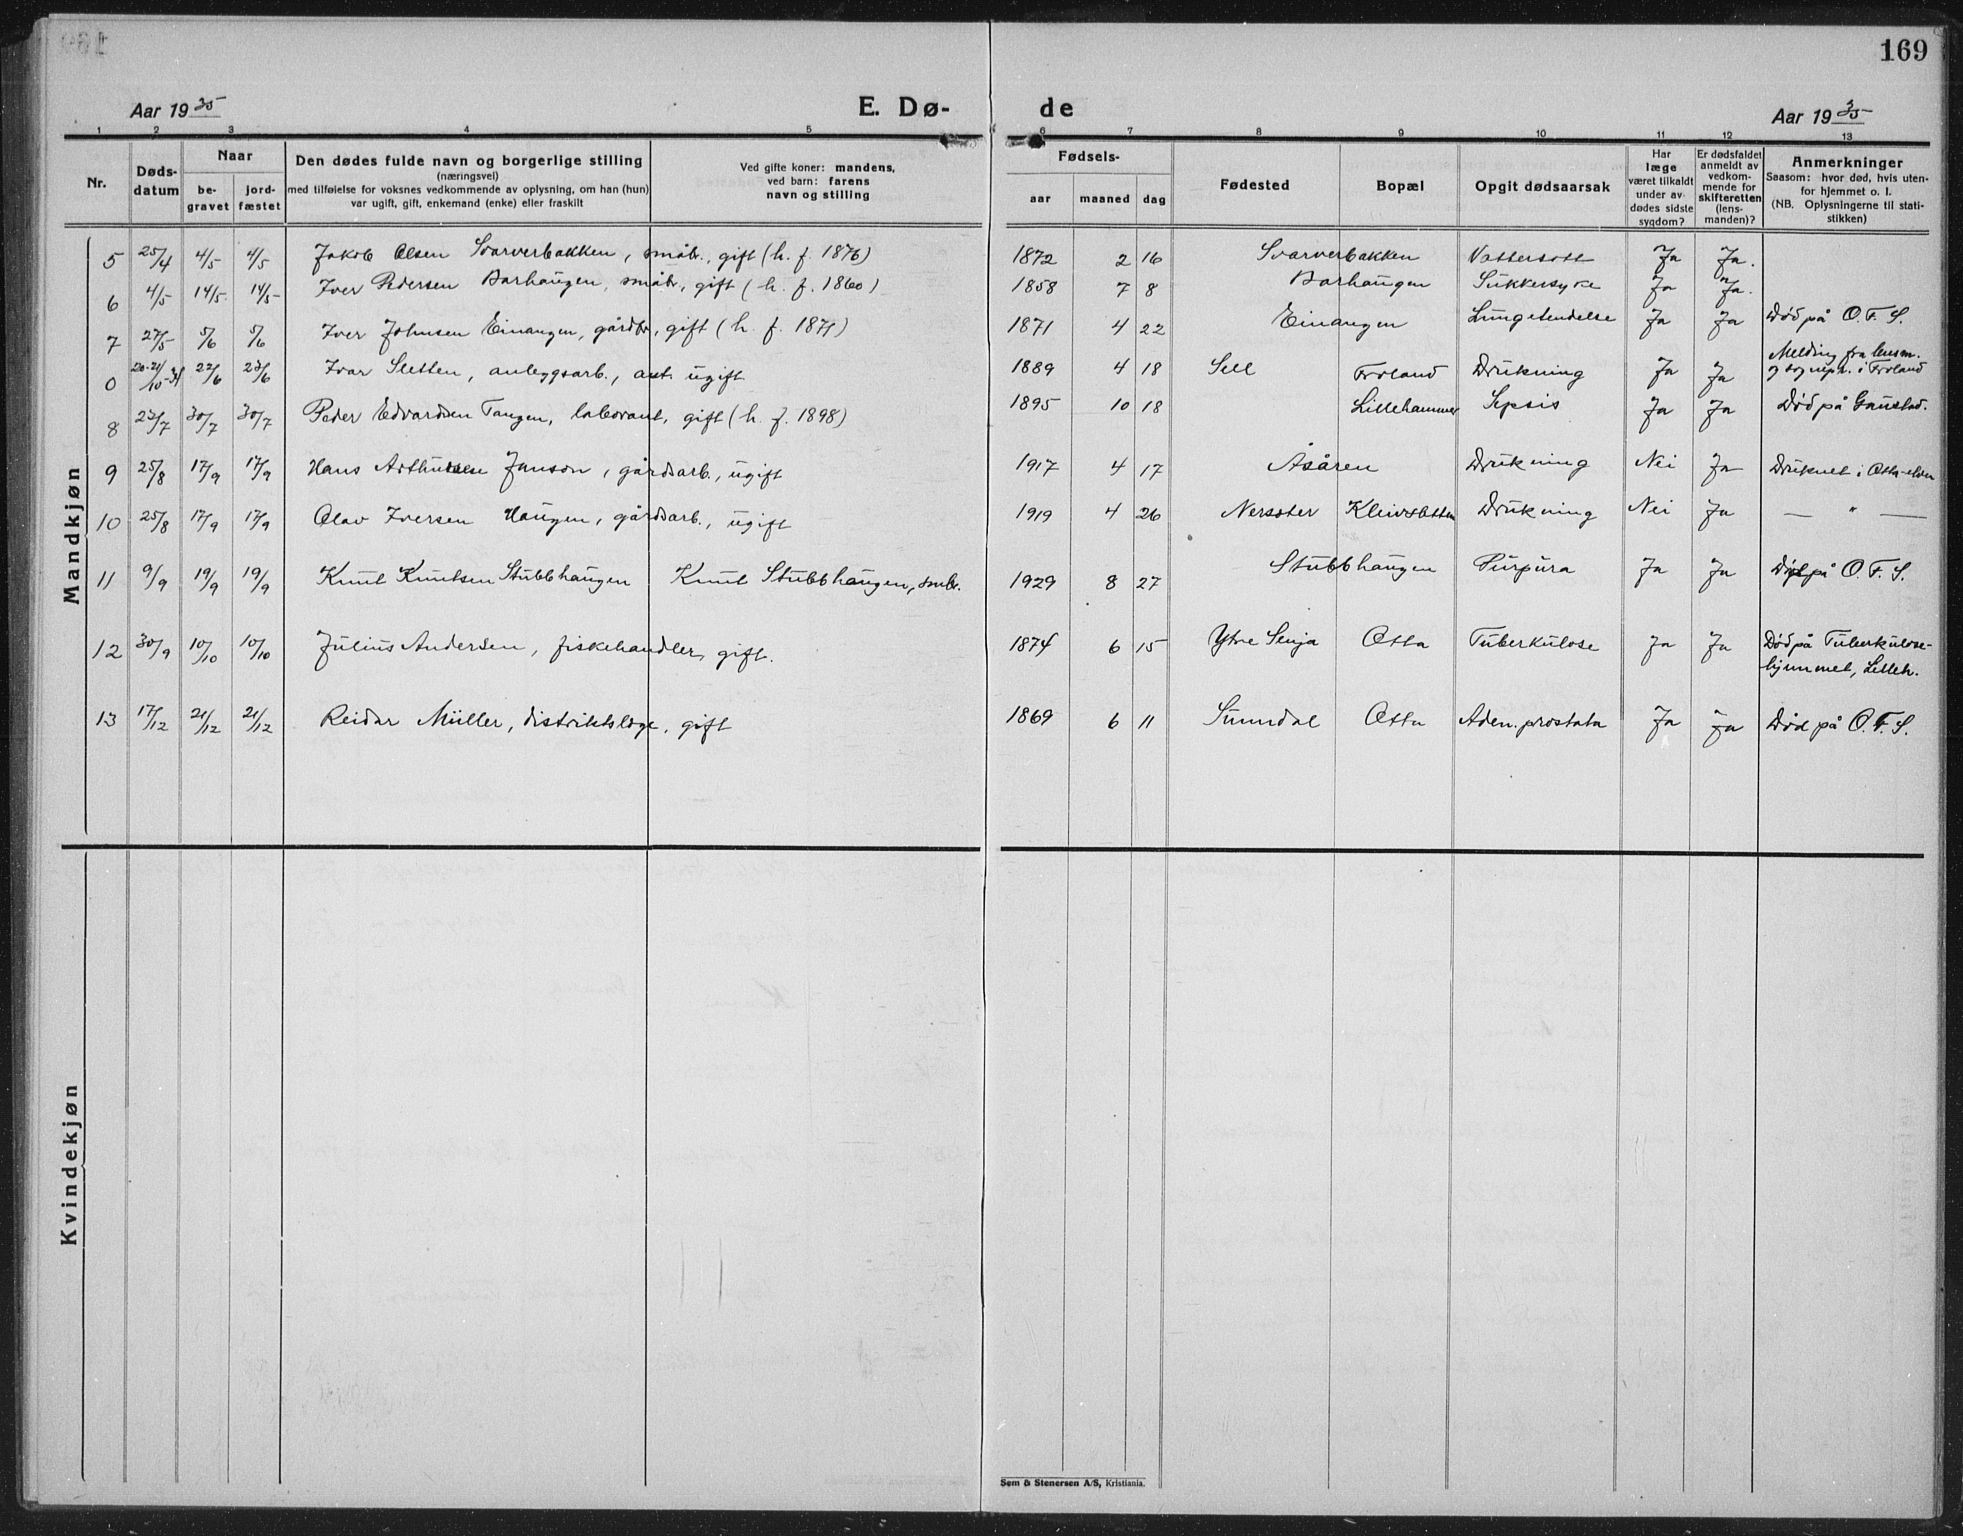 169
Aar 1935 E. Dø- de Aar 1935
1 2 3 4 5 6 7 8 9 10 11 12 13
Nr. Døds-datum Naar be-gravet jord-fæstet
Den dødes fulde navn og borgerlige stilling
(næringsvei)
med tilføielse for voksnes vedkommende av oplysning, om han (hun)
var ugift, gift, enkemand (enke) eller fraskilt
Ved gifte koner: mandens,
ved barn: farens
navn og stilling
Fødsels- aar maaned dag
Fødested Bopæl Opgit dødsaarsak
Har
læge
været tilkaldt
under av-
dødes sidste
sygdom?
Er dødsfaldet
anmeldt av
vedkom-
mende for
skifteretten
(lens-
manden)?
Anmerkninger
Saasom: hvor død, hvis uten-
for hjemmet o. l.
(NB. Oplysningerne til stati-
stikken)
Mandkjøn
5 25/4 4/5 4/5 Jakob Olsen Svarverbakken, småbr., gift (h. f. 1876) 1872 2 16 Svarverbakken Vattersott Ja Ja.
6 4/5 14/5 14/5 Iver Pedersen Barhaugen, småbr, gift (h. f. 1860) 1858 7 8 Barhaugen Sukkersyke Ja Ja.
7 27/5 5/6 5/6 Iver Johnsen Einangen, gårdbr, gift (h. f. 1871) 1871 4 22 Einangen Lungebendelse Ja Ja Død på O. F. S.
0 20-21/10-34 22/6 23/6 Ivar Sletten, anleggsarb., ant. ugift 1889 4 18 Sell Froland Drukning Ja Ja Melding fra lensm.
og sognepr. i Froland
8 23/7 30/7 30/7 Peder Edvardsen Tangen, laborant, gift (h. f. 1898) 1895 10 18 Lillehammer Sepsis Ja Ja Død på Gaustad.
9 25/8 17/9 17/9 Hans Arthursen Janson, gårdsarb., ugift 1917 4 17 Åsåren Drukning Nei Ja Druknet i Otta-elven
10 25/8 17/9 17/9 Olav Iversen Haugen, gårdsarb., ugift 1919 4 26 Nerseter Kleivsletten Drukning Nei Ja — " —
11 9/9 19/9 19/9 Knut Knutsen Stubbhaugen Knut Stubbhaugen, småbr. 1929 8 27 Stubbhaugen Purpura Ja Ja Død på O. F. S.
12 30/9 10/10 10/10 Julius Andersen, fiskehandler, gift. 1874 6 15 Ytre Senja Otta Tuberkulose Ja Ja Død på Tuberkulose-
hjemmet, Lilleh.
13 17/12 21/12 21/12 Reidar Müller, distriktslæge, gift 1869 6 11 Sunndal Otta Aden. prostata Ja Ja Død på O. F. S.
Kvindekjøn
Sem & Stenersen A/S, Kristiania.